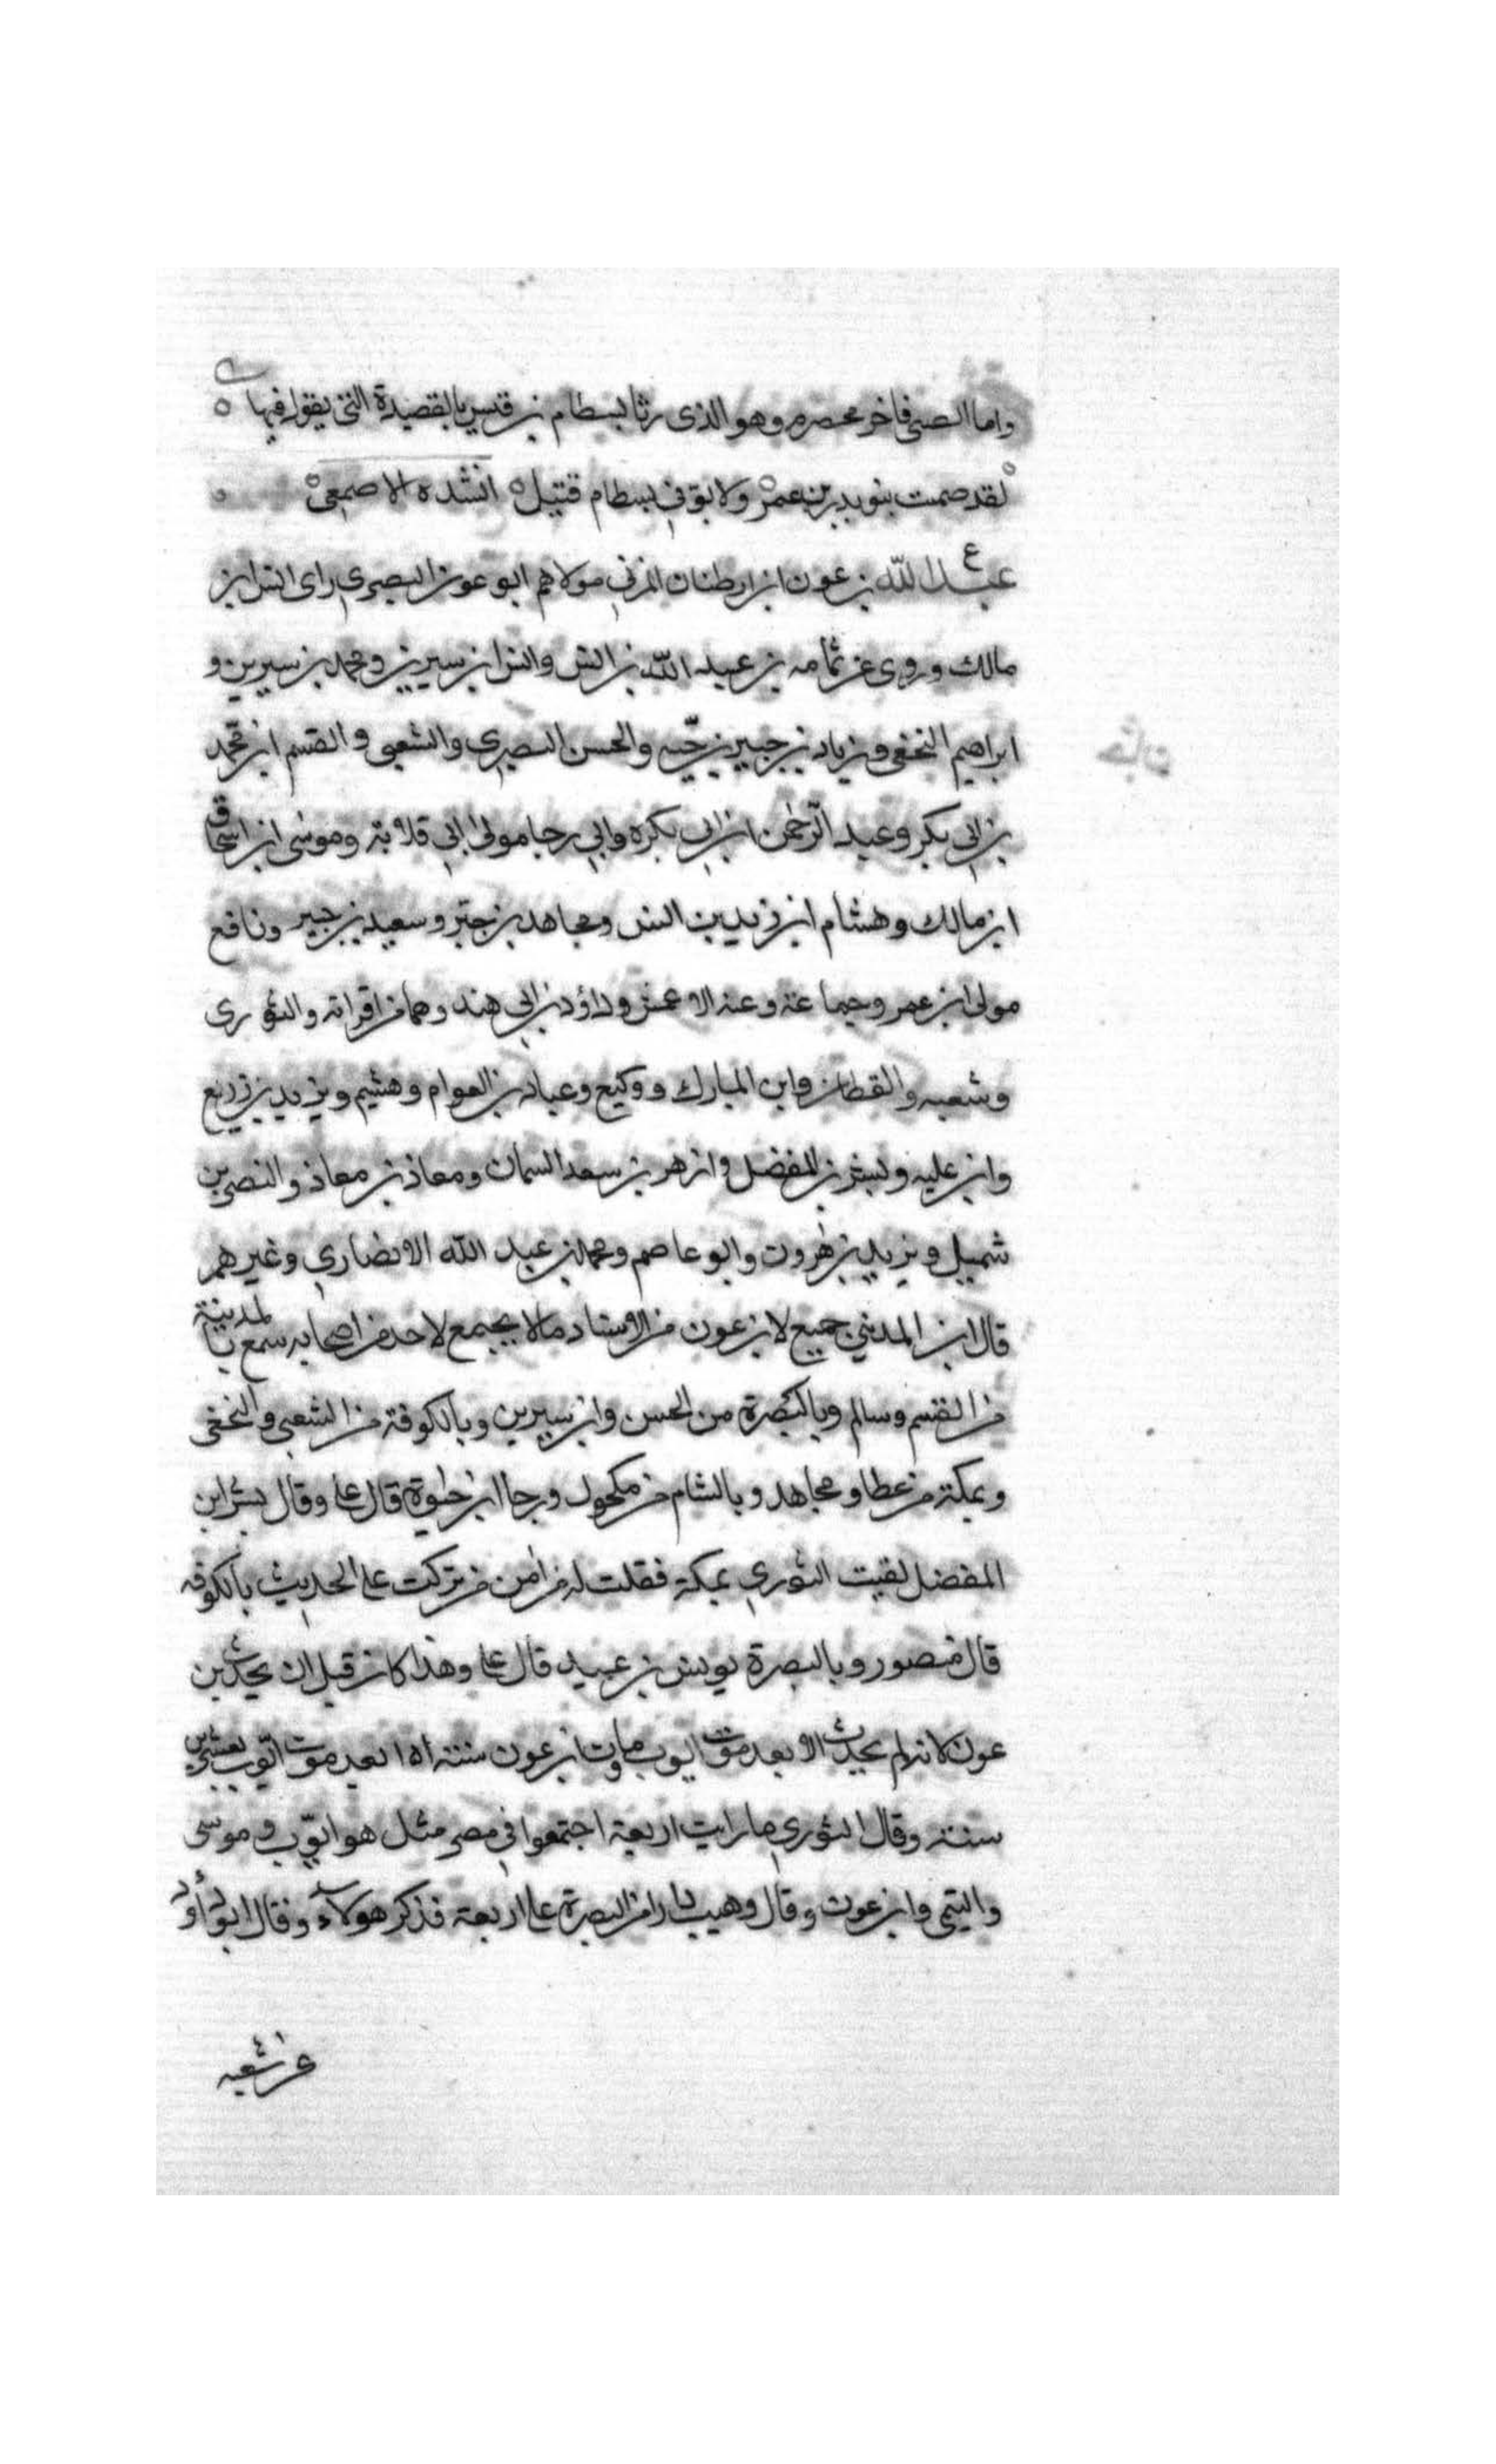 واما الضبي فاخر مخضرم وهو الذي رثا بسطام بن قيس بالقصيدة التي يقول فيها
لقد ضمت بنو بدر بن عمرو ولا يوفي بسطام قتيل انشده الاصمعي
ع
عبد الله بن عون ابن ارطنان المزني مولاهم ابو عون البصري راى انس ابن
مالك وروى عن ثمامه بن عبد الله بن انس وانس ابن سيرين ومحمد بن سيرين و
ابراهيم النخعي وزياد بن جبير بن حيه والحسن البصري والشعبي والقسم ابن محمد
بن ابي بكر وعبد الرحمن ابن ابي بكره وابي رجا مولى ابي قلابة وموسى ابن
ابن مالك وهشام ابن زيد بن انس ومجاهد بن جبر وسعيد بن جبير ونافع
مولى ابن عمر وجماعة وعنه الاعمش وداؤد بن ابي هند وهما من اقرانه والثوري
وشعبه والقطان وابن المبارك ووكيع وعباد بن العوام وهشيم ويزيد بن زريع
وابن عليه وبشر بن المفضل وازهر بن سعد السمان ومعاذ بن معاذ والنضر بن
شميل ويزيد بن هرون وابو عاصم ومحمد بن عبد الله الانصاري وغيرهم
قال ابن المديني جميع لابن عون من الاسناد مالا يجتمع لاحد من اصحابه سمع بالمدينة
من القسم وسالم وبالبصرة من الحسن وابن سيرين وبالكوفة من الشعبي والنخعي
وبمكة من عطا ومجاهد وبالشام من مكحول ورجا ابن حيوة قال علي وقال بشر ابن
المفضل لقيت الثوري بمكة فقلت له من امن من تركت على الحديث بالكوفه
قال منصور وبالبصرة يونس بن عبيد قال علي وهذا كان قبل ان يحدث بن
عون لانه لم يحدث الا بعد موت ايوب ومات ابن عون سنة ١٥١ بعد موت ايوب بعشرين
سنة وقال الثوري ما رايت اربعة اجتمعوا في مصر مثل هو ايوب وموسى
والتيمي وابن عون وقال وهيب دار امر البصرة على اربعة فذكر هولاء وقال ابو داؤد
عن شعبه